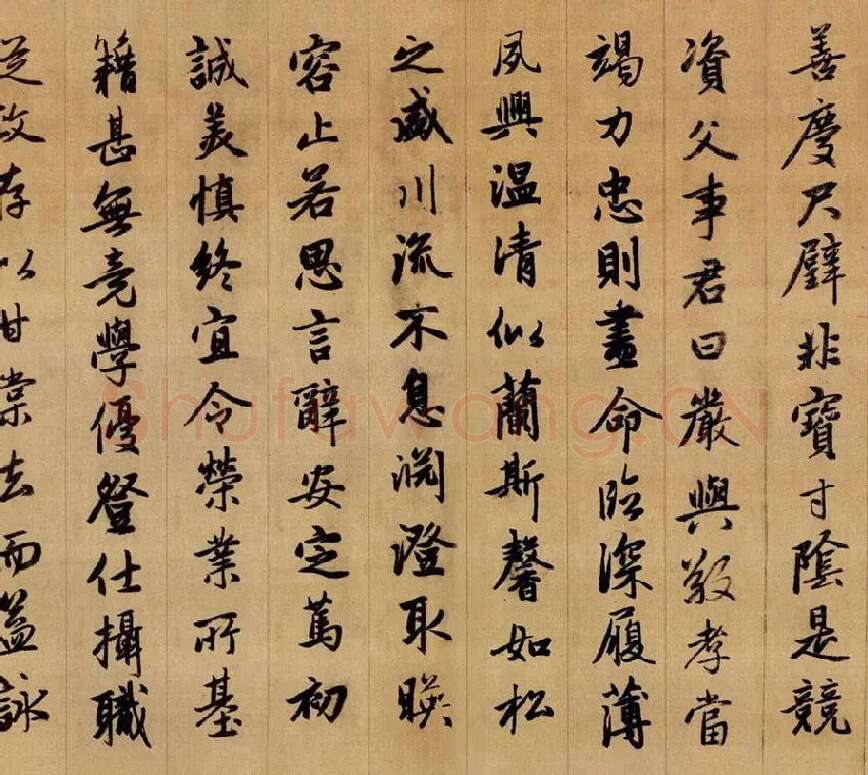 善慶尺璧非寶寸陰是競
資父事君曰嚴與敬孝當
竭力忠則盡命臨深履薄
夙興温清似蘭斯馨如松
之盛川流不息淵澄取暎
容止若思言辭安定篤初
誠美慎終宜令榮業所基
籍甚無竟學優登仕攝職
從政存以甘棠去而益詠
Shufawang.CN